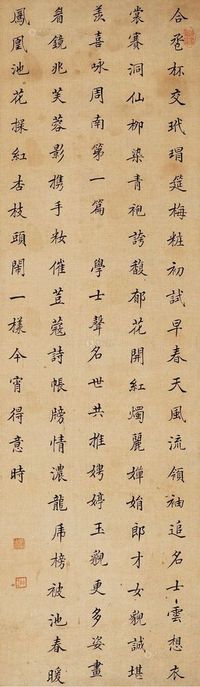 合卺杯交玳瑁筵梅粧初試早春天風流領袖追名士雲想衣
裳賽洞仙柳染青袍誇馥郁花開紅燭麗嬋娟郎才女貌誠堪
羨喜咏周南第一篇 學士聲名世共推娉婷玉貌更多姿畫
眉鏡兆芙蓉影携手妝催荳蔻詩帳牓情濃龍虎榜被池春暖
鳳凰池花探紅杏枝頭鬧一樣今宵得意時